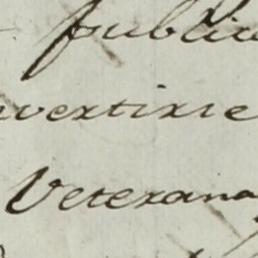 public
vertirse
Veterana